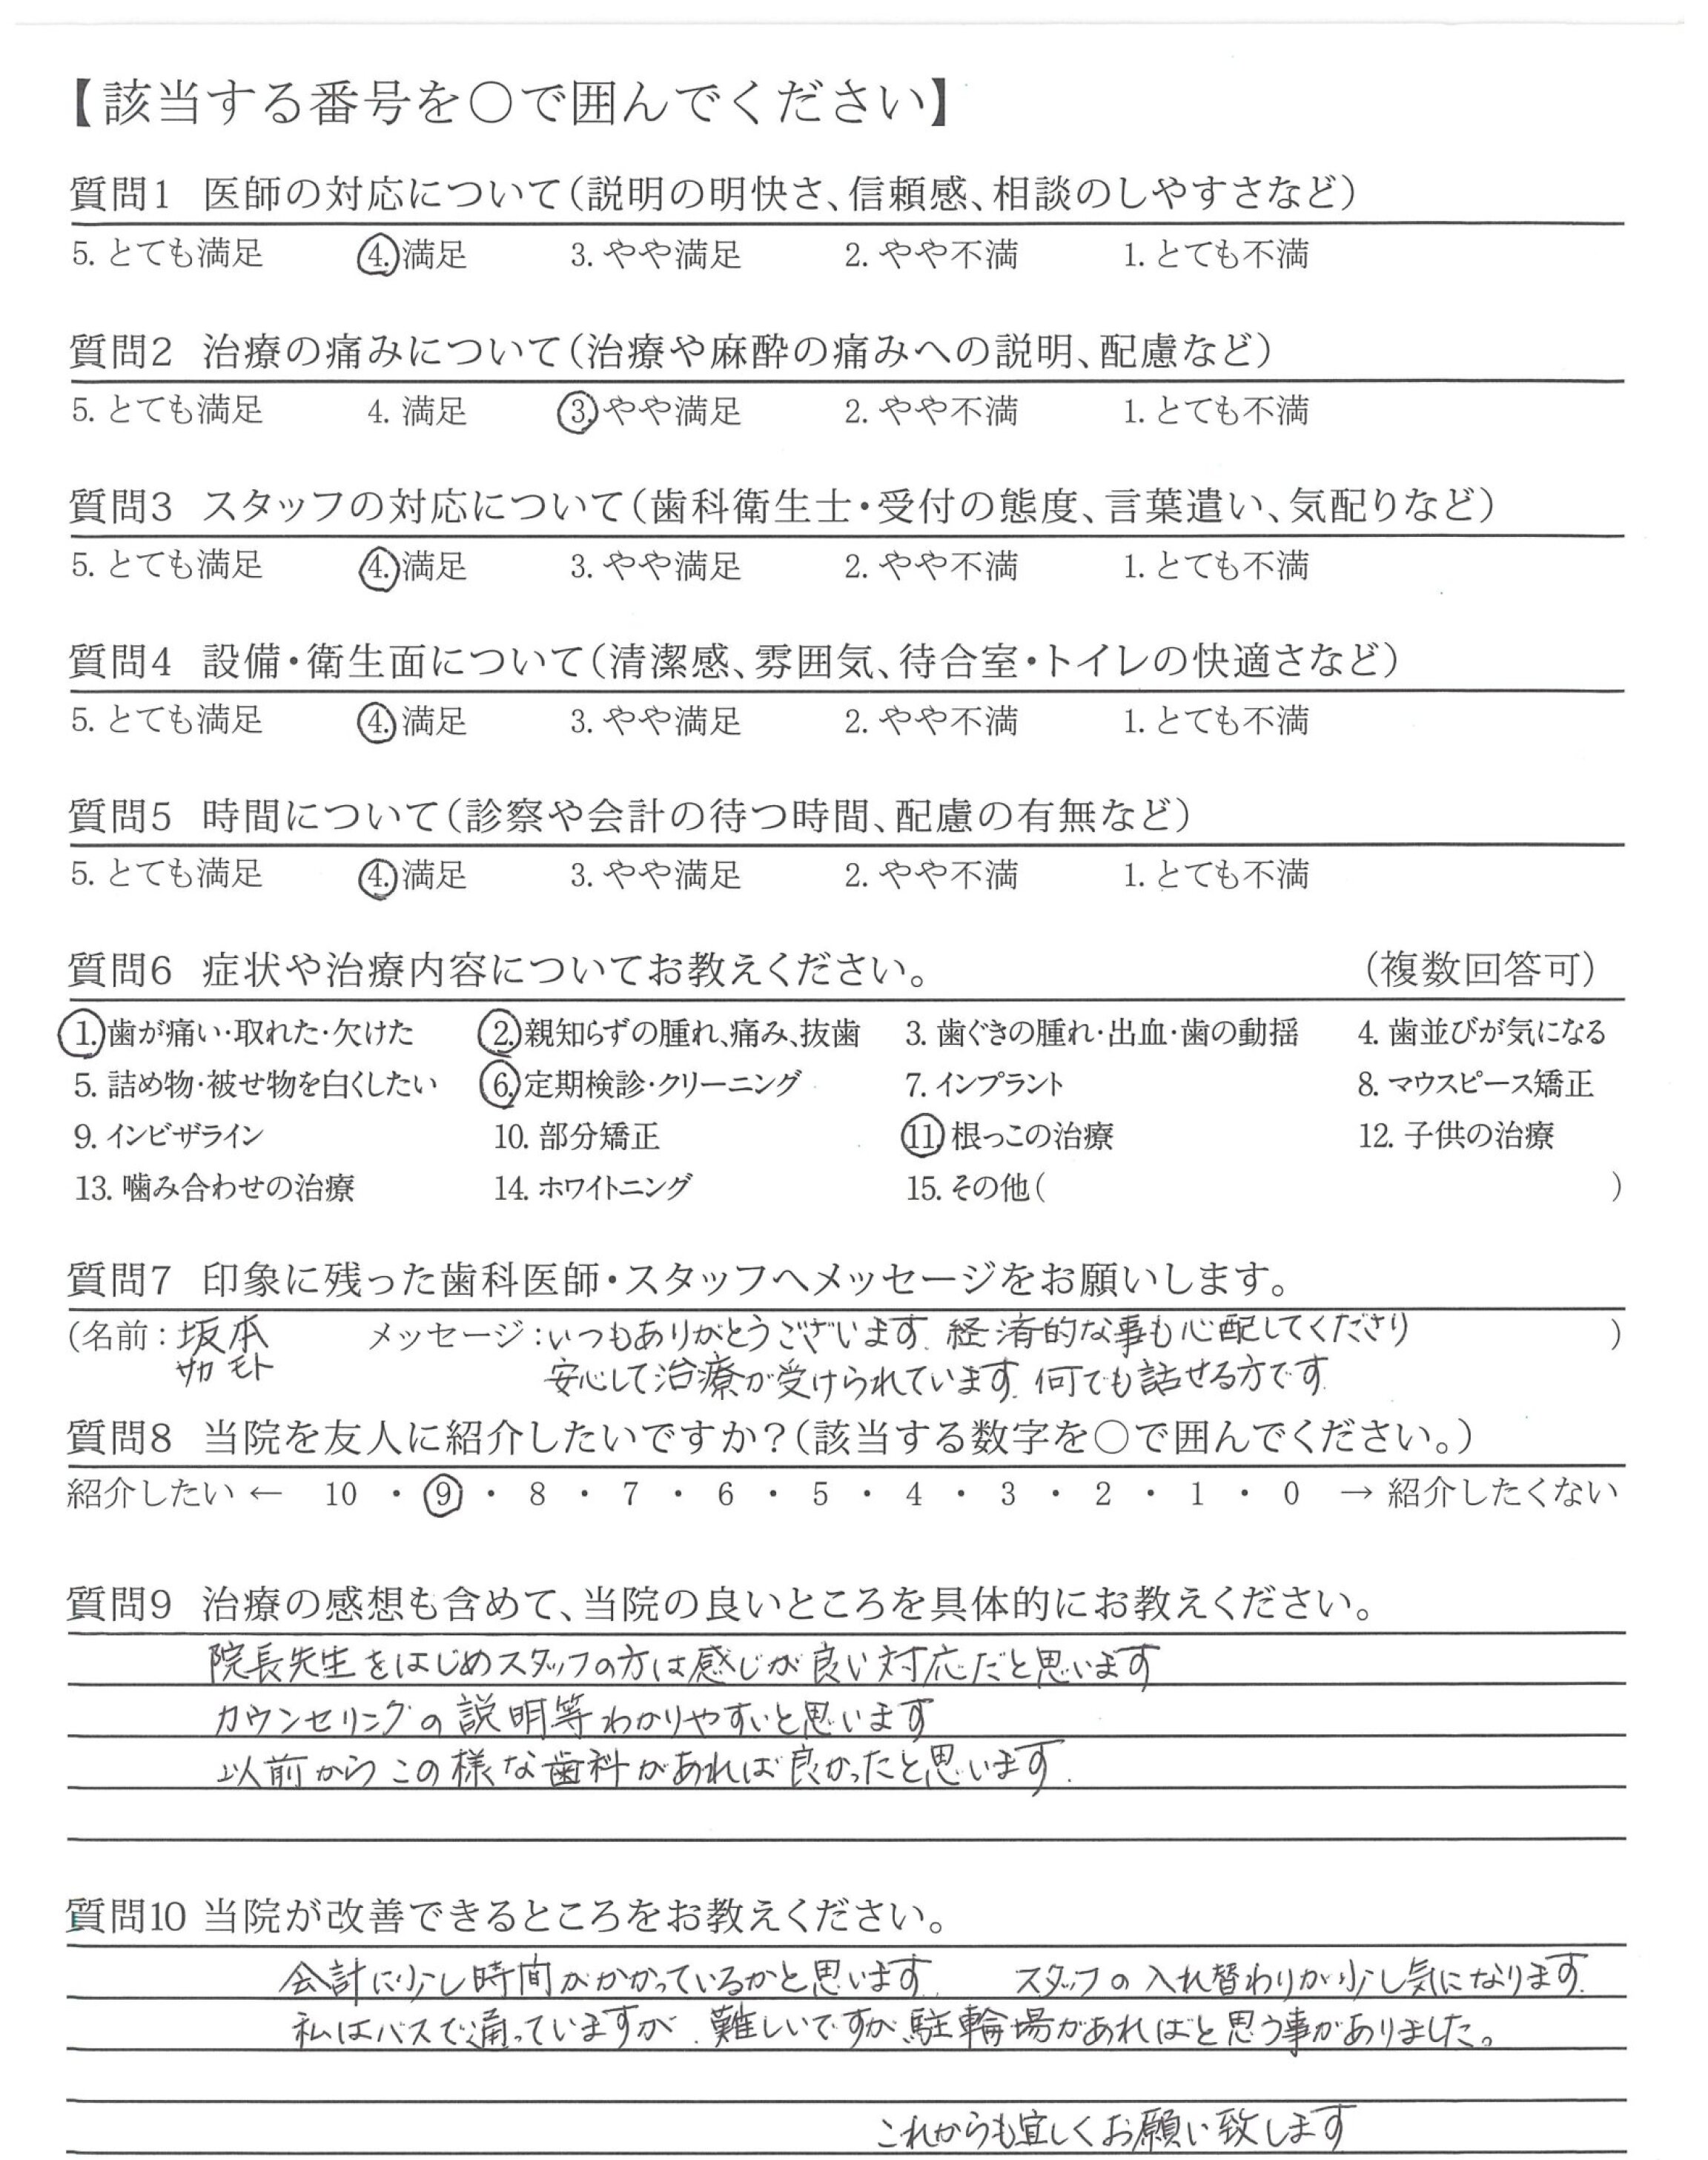 【該当する番号を○で囲んでください】
質問1 医師の対応について(説明の明快さ、信頼感、相談のしやすさなど)
5. とても満足 4. 満足 3. やや満足 2. やや不満 1. とても不満
質問2 治療の痛みについて(治療や麻酔の痛みへの説明、配慮など)
5. とても満足 4. 満足 3. やや満足 2. やや不満 1. とても不満
質問3 スタッフの対応について(歯科衛生士・受付の態度、言葉遣い、気配りなど)
5. とても満足 4. 満足 3. やや満足 2. やや不満 1. とても不満
質問4 設備・衛生面について(清潔感、雰囲気、待合室・トイレの快適さなど)
5. とても満足 4. 満足 3. やや満足 2. やや不満 1. とても不満
質問5 時間について(診察や会計の待つ時間、配慮の有無など)
5. とても満足 4. 満足 3. やや満足 2. やや不満 1. とても不満
質問6 症状や治療内容についてお教えください。 (複数回答可)
1. 歯が痛い・取れた・欠けた 2. 親知らずの腫れ、痛み、抜歯 3. 歯ぐきの腫れ・出血・歯の動揺 4. 歯並びが気になる
5. 詰め物・被せ物を白くしたい 6. 定期検診・クリーニング 7. インプラント 8. マウスピース矯正
9. インビザライン 10. 部分矯正 11. 根っこの治療 12. 子供の治療
13. 噛み合わせの治療 14. ホワイトニング 15. その他( )
質問7 印象に残った歯科医師・スタッフへメッセージをお願いします。
(名前：坂本 メッセージ：いつもありがとうございます. 経済的な事も心配してくださり )
サカモト 安心して治療が受けられています. 何でも話せる方です.
質問8 当院を友人に紹介したいですか？(該当する数字を○で囲んでください。)
紹介したい ← 10 ・ 9 ・ 8 ・ 7 ・ 6 ・ 5 ・ 4 ・ 3 ・ 2 ・ 1 ・ 0 → 紹介したくない
質問9 治療の感想も含めて、当院の良いところを具体的にお教えください。
院長先生をはじめスタッフの方は感じが良い対応だと思います
カウンセリングの説明等わかりやすいと思います
以前からこの様な歯科があれば良かったと思います.
質問10 当院が改善できるところをお教えください。
会計に少し時間がかかっているかと思います. スタッフの入れ替わりが少し気になります.
私はバスで通っていますが. 難しいですが駐輪場があればと思う事がありました。
これからも宜しくお願い致します